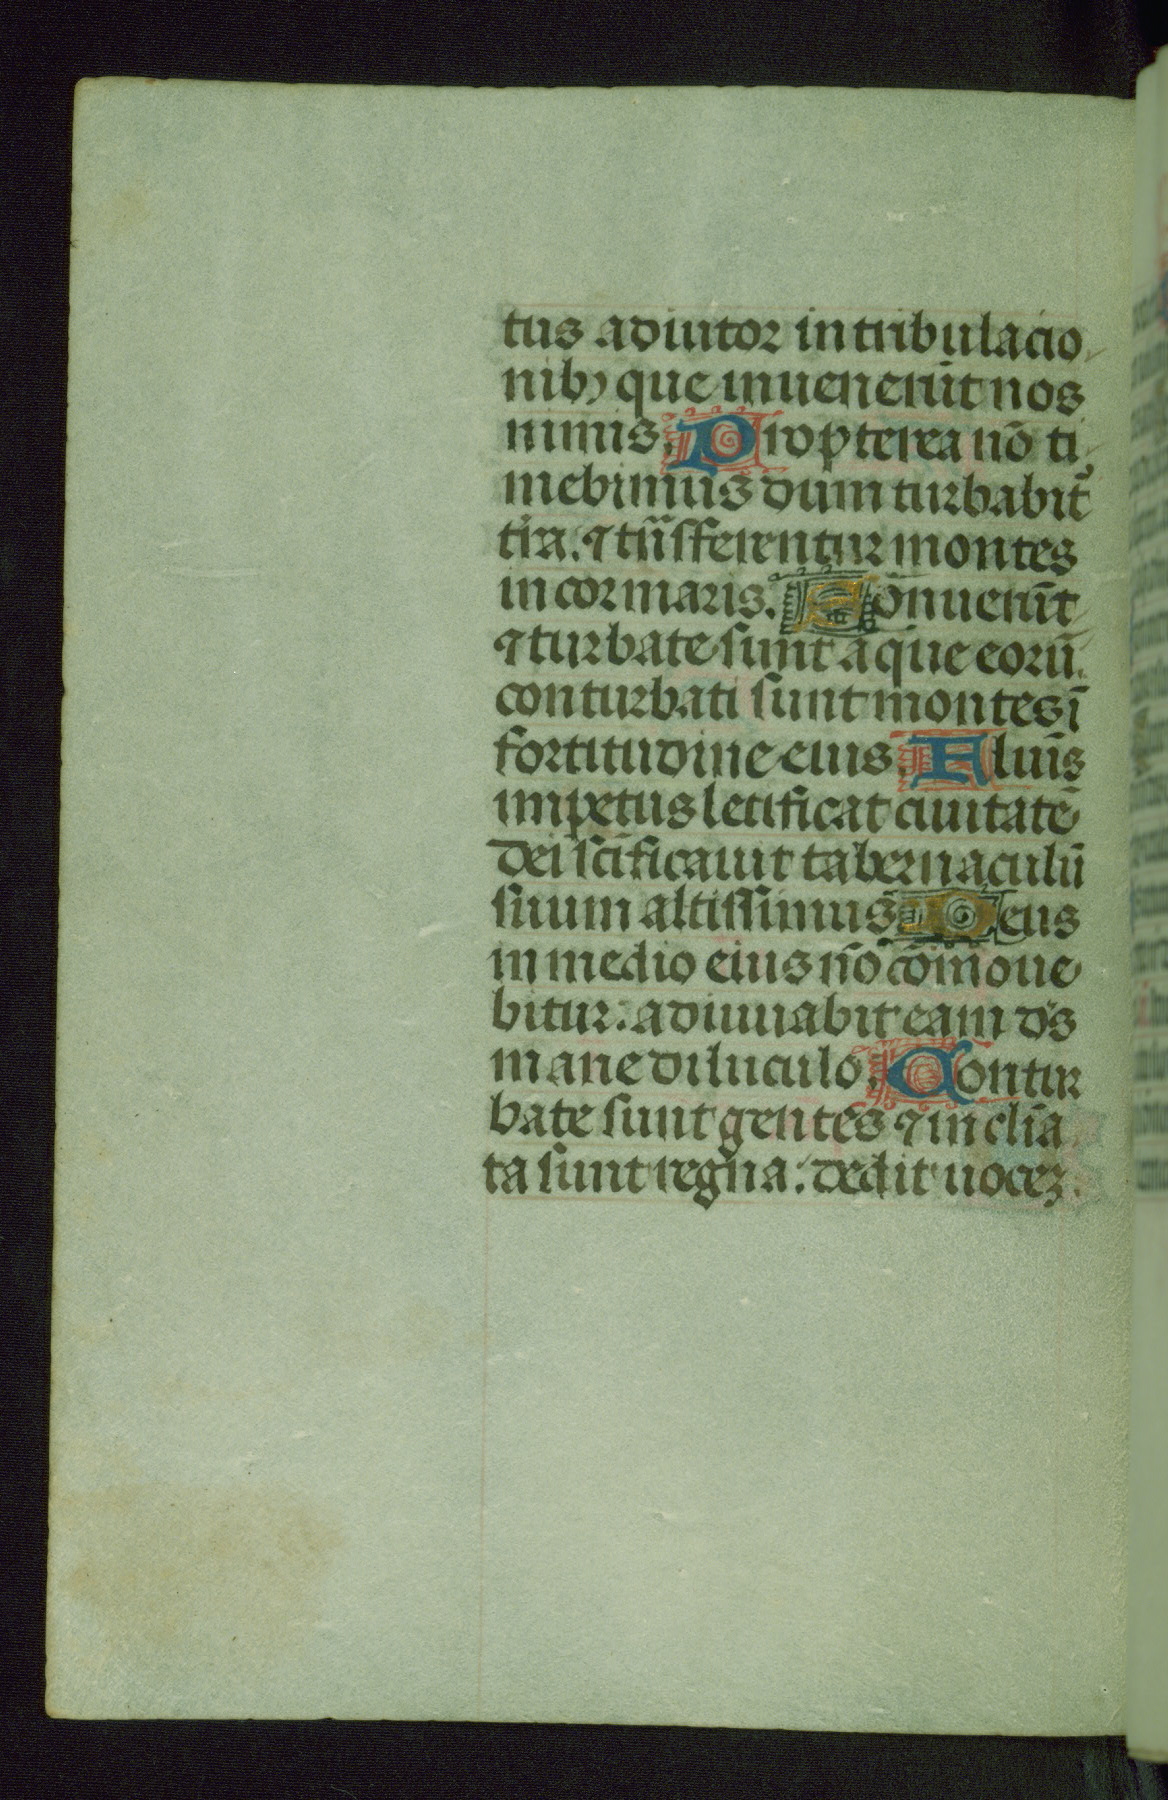 tus adiutor in tribulacio
nibꝫ que inuenerūt nos
nimis. Propterea nō ti
mebimus dum turbabit᷑
tr̄a. ⁊ trāsferentur montes
in cor maris. Sonuerūt
⁊ turbate sunt aque eorū.
conturbati sunt montes ī
fortitudine eius. Fluīs
impetus letificat ciuitatē
dei sc̄ificauit tabernaculū
suum altissimus. Deus
in medio eius nō cōmoue
bitur: adiuuabit eam dꝰs
mane diluculo. Contur
bate sunt gentes ⁊ inclīa
ta sunt regna: dedit uoceꝫ